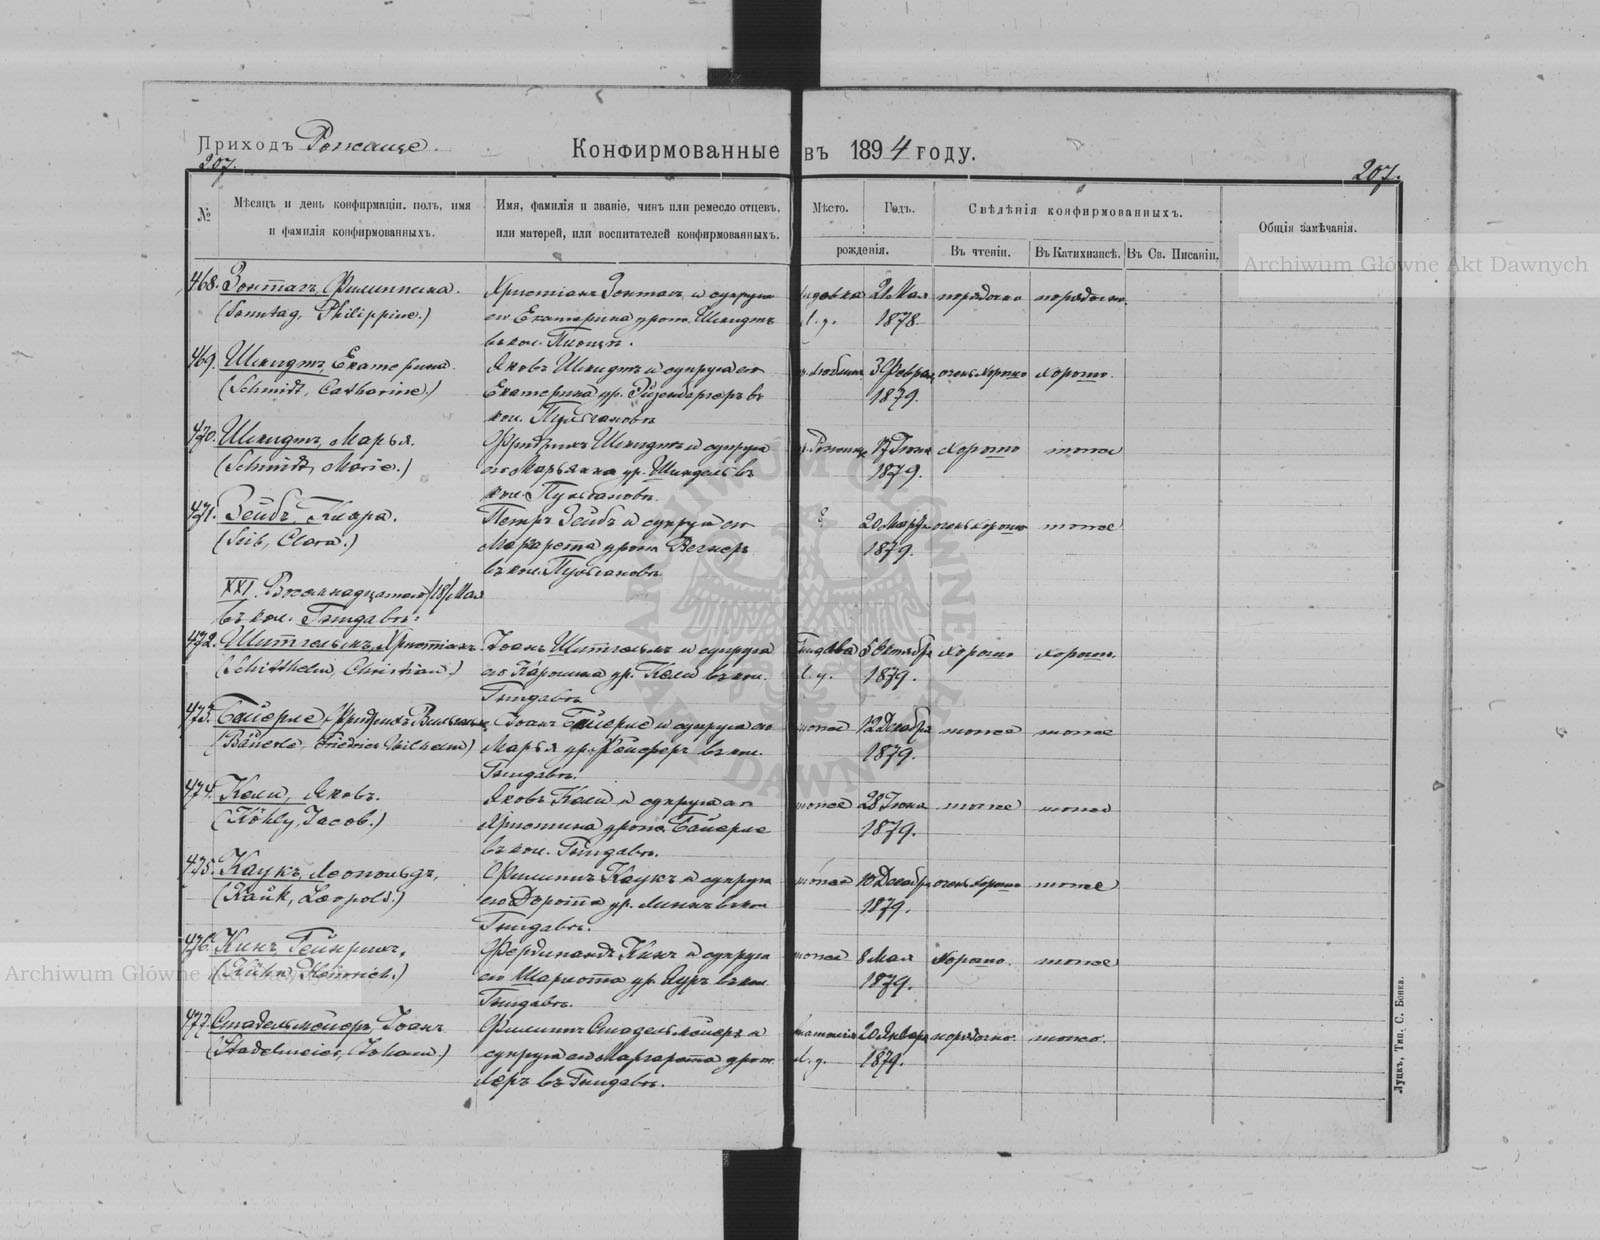 Приходъ Рожище.
Конфирмованные въ 1894 году.
207.
207.
№
Мѣсяцъ и день конфирмаціи, полъ, имя и фамилія конфирмованныхъ.
Имя, фамилія и званіе, чинъ или ремесло отцевъ, или матерей, или воспитателей конфирмованныхъ.
Мѣсто.
Годъ.
рожденія.
Свѣдѣнія конфирмованныхъ.
Въ чтеніи.
Въ Катихизисѣ.
Въ Св. Писаніи.
Общія замѣчанія.
468. Зонтагъ, Филиппина. Христіанъ Зонтаг и супруга 21 Мая порядочно порядочно.
(Sonntag, Philippine.) его Екатерина урож. Шмидтъ 1878.
въ кол.
469. Шмидтъ, Екатерина. Яковъ Шмидтъ и супруга его 3 Февраля очень хорошо хорошо.
(Schmidt, Catharine.) Екатерина ур. въ 1879.
кол.
470. Шмидтъ, Марья. Фридрихъ Шмидтъ и супруга 17 Іюня хорошо тоже
(Schmidt, Marie.) его Марьянна ур. Шиндель въ 1879.
кол.
471. Зейбъ, Клара. Петръ Зейбъ и супруга его ? 20 Марта очень хорошо тоже
(Seib, Clara.) Маргарета урож. Вегнеръ 1879.
въ кол.
XXI. Восемнадцатаго /18/ Мая
въ кол. Гнидавѣ:
472. Шитгельмъ, Христіанъ Іоанъ Шитгельмъ и супруга Гнидава 5 Октября хорошо хорошо.
(Schitthelm, Christian.) его Каролина ур. Кели въ кол. Л. у. 1879.
Гнидавѣ.
473. Бейерле, Фридрихъ Вильгельмъ Іоанъ Бейерле и супруга его тоже 12 Декабря тоже тоже
(Bäuerle, Friedrich Wilhelm) Марья ур. въ кол. 1879.
Гнидавѣ.
474. Кели, Яковъ. Яковъ Кели и супруга его тоже 28 Іюня тоже тоже
(Köhly, Jacob.) Христина урож. Бейерле 1879.
въ кол. Гнидавѣ.
475. Каукъ, Леопольдъ, Филиппъ Каукъ и супруга тоже 10 Декабря очень хорошо тоже
(Kauk, Leopold.) его Доротта ур. Линкъ въ кол 1879.
Гнидавѣ.
476. Кинъ, Гейнрихъ, Фердинандъ Кинъ и супруга тоже 8 Мая хорошо. тоже
(Kühn, Heinrich.) его Шарлотта ур. въ кол. 1879.
Гнидавѣ.
477. Стадельмейеръ, Іоанъ Филиппъ Стадельмейеръ и 20 Января порядочно. тоже.
(Stadelmeier, Johann.) супруга его Маргарета урож. Л. у. 1879.
въ Гнидавѣ.
Луцкъ, Тип. С. Бонка.
Archiwum Główne Akt Dawnych
Archiwum Główne Akt Dawnych
ARCHIWUM GŁÓWNE AKT DAWNYCH